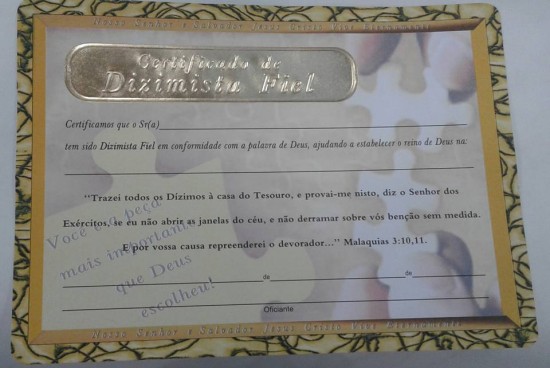 Nosso Senhor e Salvador Jesus Cristo Vive Eternamente
Certificado de
Dizimista Fiel
Certificamos que o Sr(a)
tem sido Dizimista Fiel em conformidade com a palavra de Deus, ajudando a estabelecer o reino de Deus na:
"Trazei todos os Dízimos à casa do Tesouro, e provai-me nisto, diz o Senhor dos
Exércitos, se eu não abrir as janelas do céu, e não derramar sobre vós benção sem medida.
E por vossa causa repreenderei o devorador..." Malaquias 3:10,11.
Você é a peça
mais importante
que Deus
escolheu!
de de
Oficiante
Nosso Senhor e Salvador Jesus Cristo Vive Eternamente